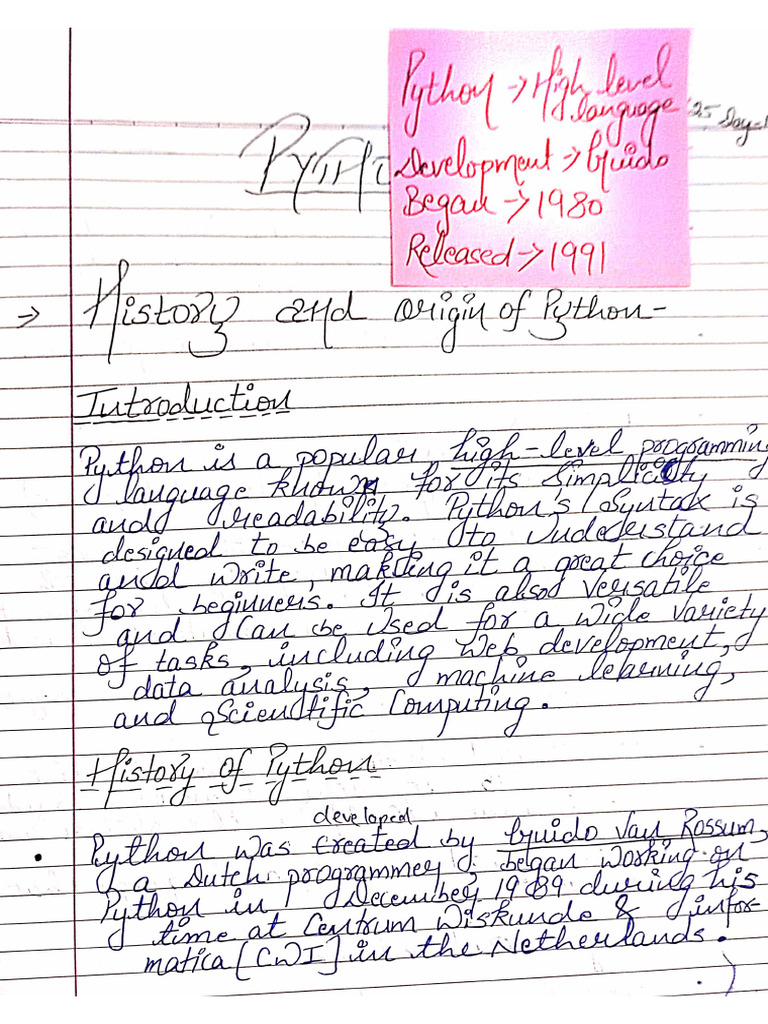 Python → High level
language
Development → Guido
Began → 1980
Released → 1991
25 Day-1
PYTH
→ History and origin of Python-
Introduction
Python is a popular high-level programming
language known for its simplicity
and readability. Python's Syntax is
designed to be easy to Undeerstand
and write, making it a great choice
for beginners. It is also versatile
and Can be Used for a wide variety
of tasks, including Web development,
data analysis, machine learning,
and Scientific Computing.
History of Python
developed
• Python was created by Guido Van Rossum,
a Dutch programmer began working on
Python in December 1989 during his
time at Centrum Wiskunde & infor-
matica [CWI] in the Netherlands.